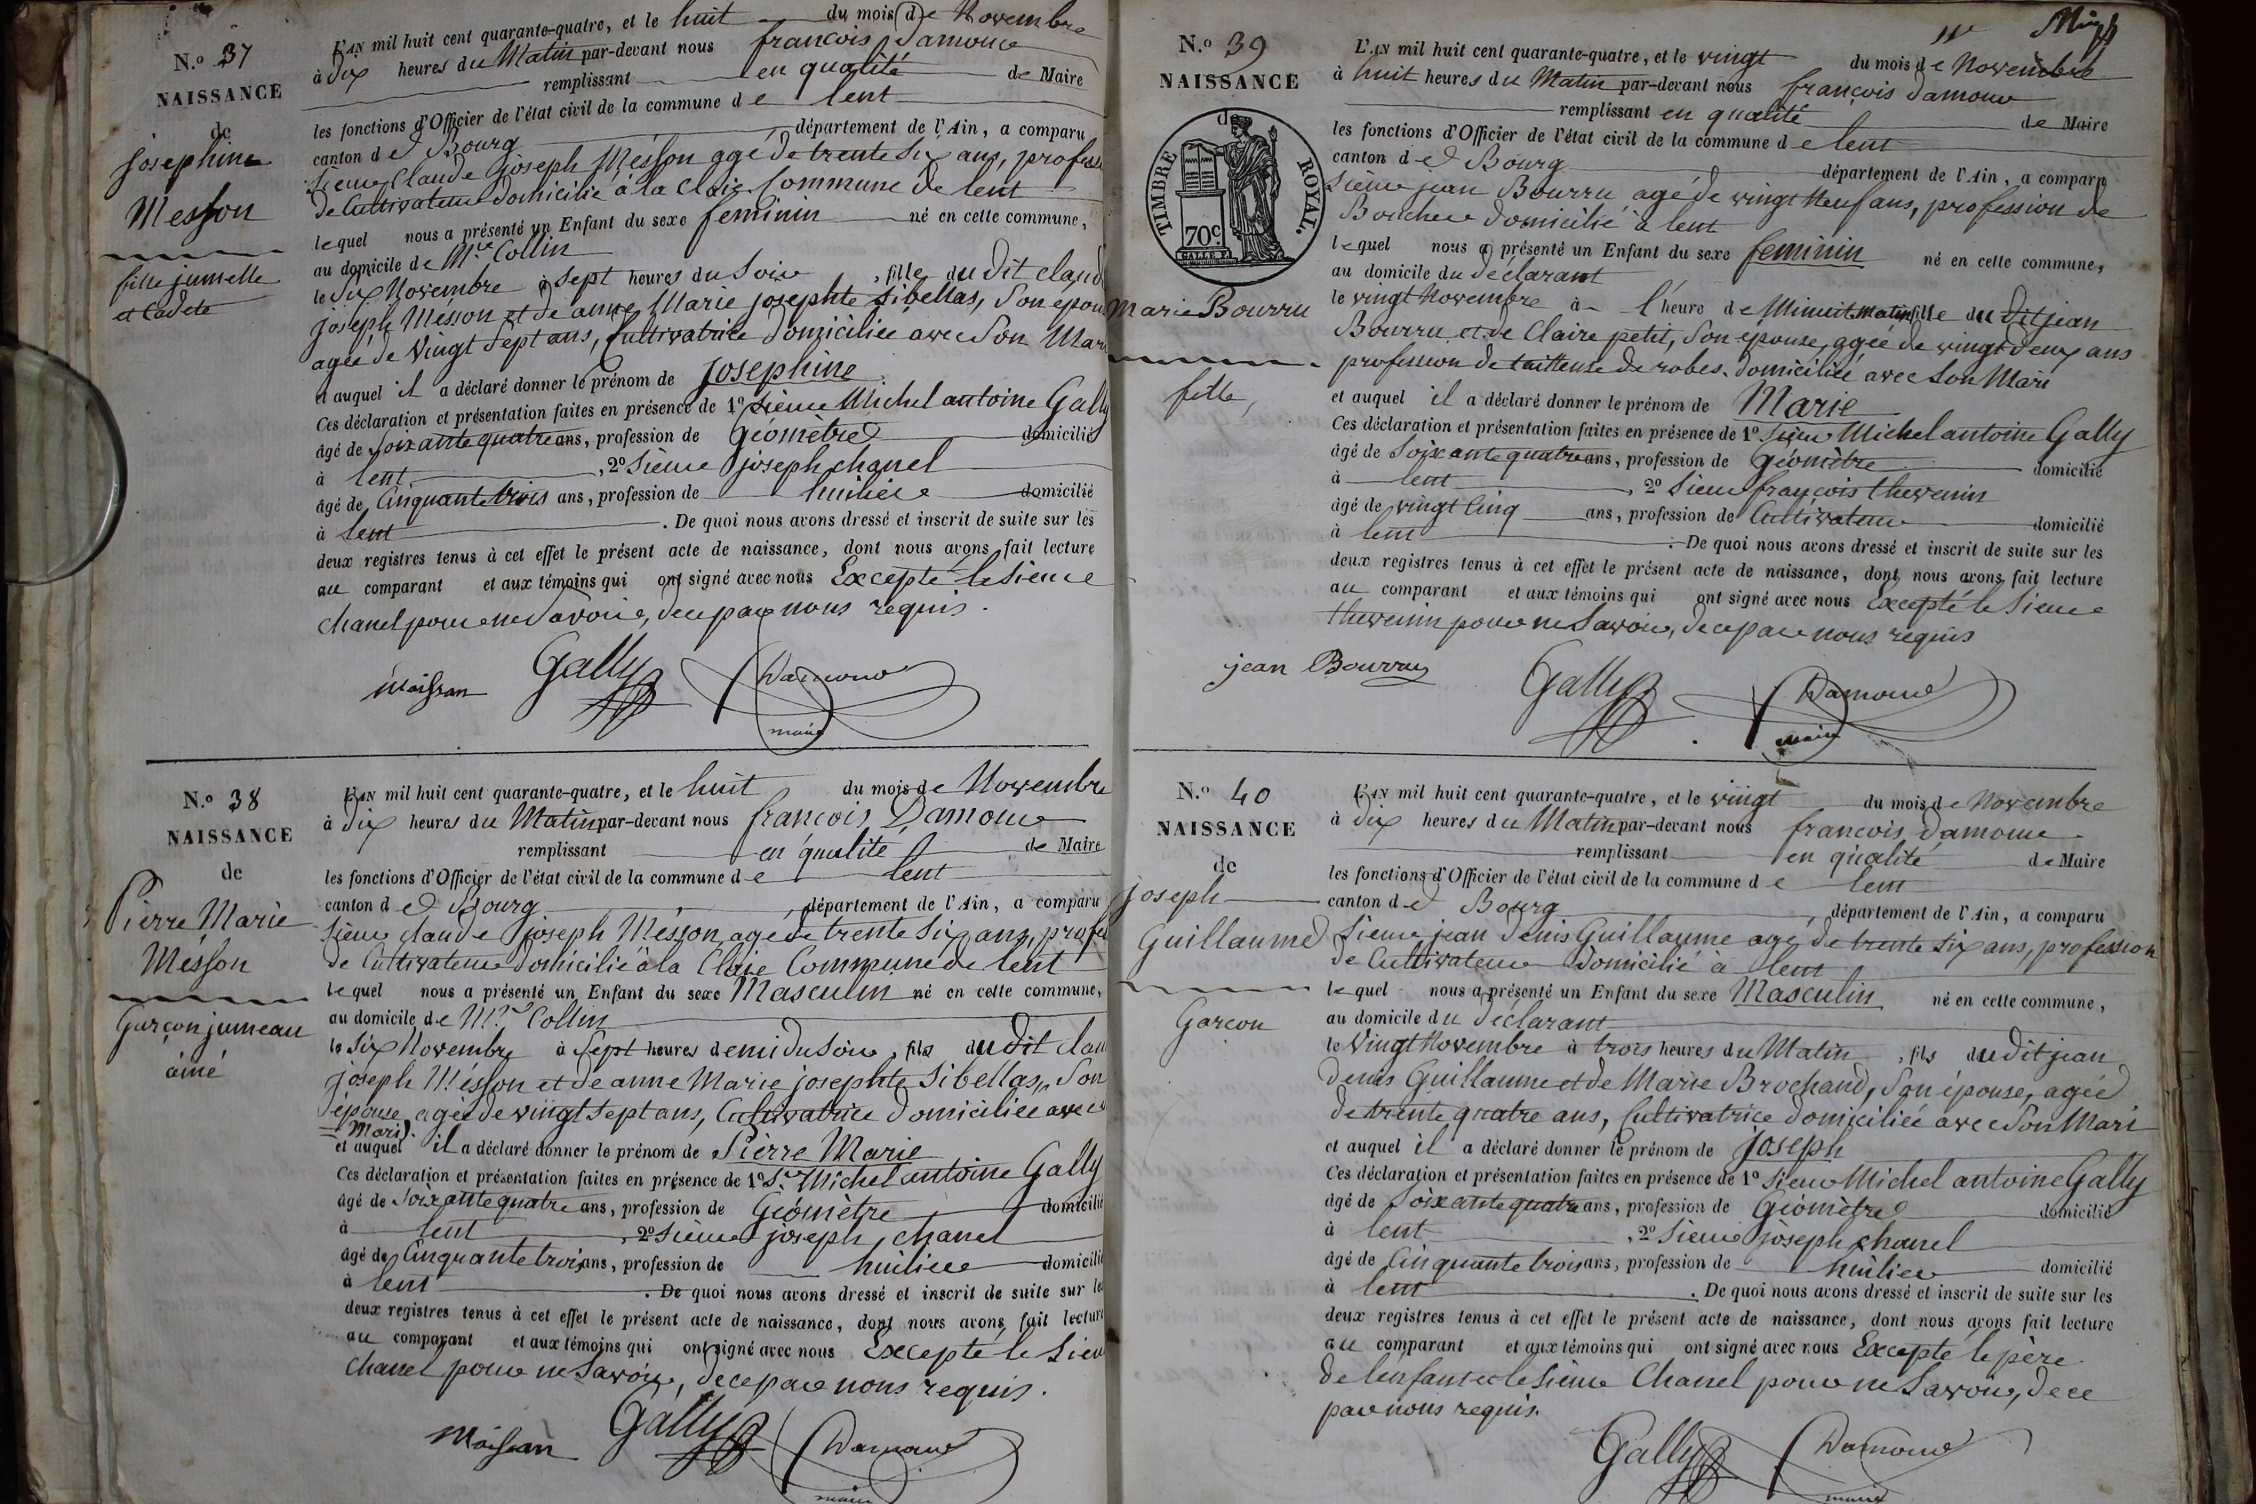 N.º 37
NAISSANCE
de
josephine
Messon
fille jumelle
et Cadete
L'AN mil huit cent quarante-quatre, et le huit du mois de Novembre
à dix heures du Matin par-devant nous francois Damour
remplissant en qualité de Maire
les fonctions d'Officier de l'état civil de la commune de lent
canton de Bourg département de l'Ain, a comparu
Sieur Claude joseph Mésson agé de trente Six ans, profess
de Cultivateur domicilié à la Claie Commune de lent
lequel nous a présenté un Enfant du sexe feminin né en cette commune,
au domicile de Mr Collin
le Six Novembre à Sept heures du Soir, fille du dit claud
joseph Mésson et de anne Marie josephte Sibellas, Son epou
agée de Vingt Sept ans, Cultivatrice domiciliée avec Son Mari
et auquel il a déclaré donner le prénom de josephine
Ces déclaration et présentation faites en présence de 1º Sieur Michel antoine Gally
âgé de Soixante quatre ans, profession de Géomètre domicilié
à lent, 2º Sieur joseph chanel
âgé de Cinquante trois ans, profession de huilier domicilié
à lent. De quoi nous avons dressé et inscrit de suite sur les
deux registres tenus à cet effet le présent acte de naissance, dont nous avons fait lecture
au comparant et aux témoins qui ont signé avec nous Excepté le Sieur
chanel pour ne Savoir, de ce par nous requis.
Moissan Gally Damour
maire
N.º 38
NAISSANCE
de
Pierre Marie
Mésson
Garçon jumeau
ainé
L'AN mil huit cent quarante-quatre, et le huit du mois de Novembre
à dix heures du Matin par-devant nous francois Damour
remplissant en qualité de Maire
les fonctions d'Officier de l'état civil de la commune de lent
canton de Bourg, département de l'Ain, a comparu
Sieur claude joseph Mésson agé de trente Six ans, profes
de Cultivateur domicilié à la Claie Commune de lent
lequel nous a présenté un Enfant du sexe Masculin né en cette commune,
au domicile de Mr Collin
le Six Novembre à Sept heures demi du Soir, fils du dit clau
joseph Mésson et de anne Marie josephte Sibellas, Son
épouse, agée de vingt Sept ans, Cultivatrice domiciliée avec
Mari.
et auquel il a déclaré donner le prénom de Pierre Marie
Ces déclaration et présentation faites en présence de 1º Sr Michel antoine Gally
âgé de Soixante quatre ans, profession de Géomètre domicilié
à lent, 2º Sieur joseph chanel
âgé de Cinquante trois ans, profession de huilier domicilié
à lent. De quoi nous avons dressé et inscrit de suite sur les
deux registres tenus à cet effet le présent acte de naissance, dont nous avons fait lecture
au comparant et aux témoins qui ont signé avec nous Excepté le Sieu
chanel pour ne Savoir, de ce par nous requis.
Moissan Gally Damour
maire
N.º 39
NAISSANCE
de
TIMBRE ROYAL.
70c.
Marie Bourru
fille,
L'AN mil huit cent quarante-quatre, et le vingt du mois de Novembre
à huit heures du Matin par-devant nous françois Damour
remplissant en qualité de Maire
les fonctions d'Officier de l'état civil de la commune de lent
canton de Bourg département de l'Ain, a comparu
Sieur jean Bourru agé de vingt Neuf ans, profession de
Boucher domicilié à lent
lequel nous a présenté un Enfant du sexe feminin né en cette commune,
au domicile du déclarant
le vingt Novembre à l'heure de Minuit Matin fille du dit jean
Bourru et de Claire petit, Son épouse, agée de vingt deux ans
profession de tailleuse de robes, domiciliée avec Son Mari
et auquel il a déclaré donner le prénom de Marie
Ces déclaration et présentation faites en présence de 1º Sieur Michel antoine Gally
âgé de Soixante quatre ans, profession de Géomètre domicilié
à lent, 2º Sieur françois thevenin
âgé de vingt Cinq ans, profession de Cultivateur domicilié
à lent. De quoi nous avons dressé et inscrit de suite sur les
deux registres tenus à cet effet le présent acte de naissance, dont nous avons fait lecture
au comparant et aux témoins qui ont signé avec nous Excepté le Sieur
thevenin pour ne Savoir, de ce par nous requis
jean Bourru Gally Damour
maire
N.º 40
NAISSANCE
de
joseph
Guillaume
Garcon
L'AN mil huit cent quarante-quatre, et le vingt du mois de Novembre
à dix heures du Matin par-devant nous francois Damour
remplissant en qualité de Maire
les fonctions d'Officier de l'état civil de la commune de lent
canton de Bourg, département de l'Ain, a comparu
Sieur jean denis Guillaume agé de trente Six ans, profession
de Cultivateur domicilié à lent
lequel nous a présenté un Enfant du sexe Masculin né en cette commune,
au domicile du déclarant
le Vingt Novembre à trois heures du Matin, fils du dit jean
denis Guillaume et de Marie Brochand, Son épouse, agée
de trente quatre ans, Cultivatrice domiciliée avec Son Mari
et auquel il a déclaré donner le prénom de joseph
Ces déclaration et présentation faites en présence de 1º Sieur Michel antoine Gally
âgé de Soixante quatre ans, profession de Géomètre domicilié
à lent, 2º Sieur joseph chanel
âgé de Cinquante trois ans, profession de huilier domicilié
à lent. De quoi nous avons dressé et inscrit de suite sur les
deux registres tenus à cet effet le présent acte de naissance, dont nous avons fait lecture
au comparant et aux témoins qui ont signé avec nous Excepté le père
de l'enfant et le Sieur Chanel pour ne Savoir, de ce
par nous requis.
Gally Damour
maire